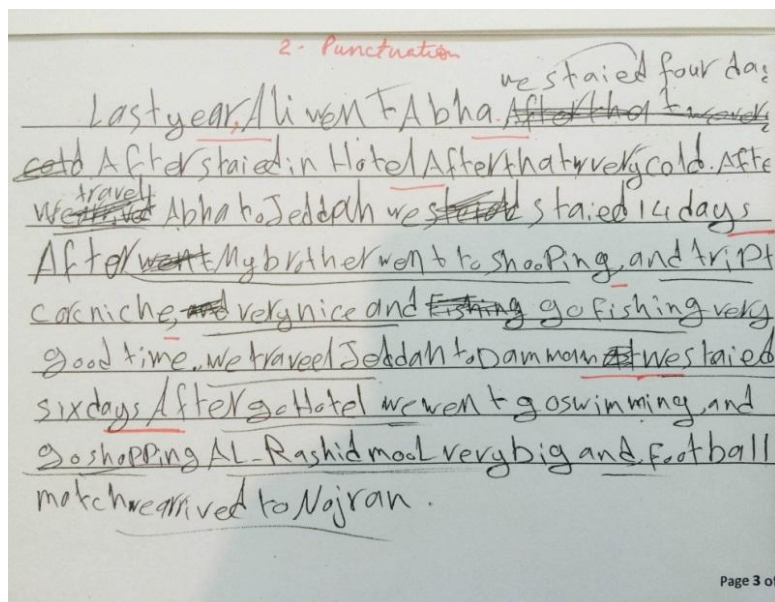 2- Punctuation
we staied four da
Last year, Ali went Abha.
After staied in Hotel After that very cold. Afte
travel
We Abha to Jeddah we staied 14 days
After My brother went to shooping, and tript
corniche, very nice and go fishing very
good time. we traveel Jeddah to Dammam we staied
six days After go Hotel we went go swimming, and
go shopping AL-Rashid mool very big and football
match we arrived to Najran.
Page 3 of